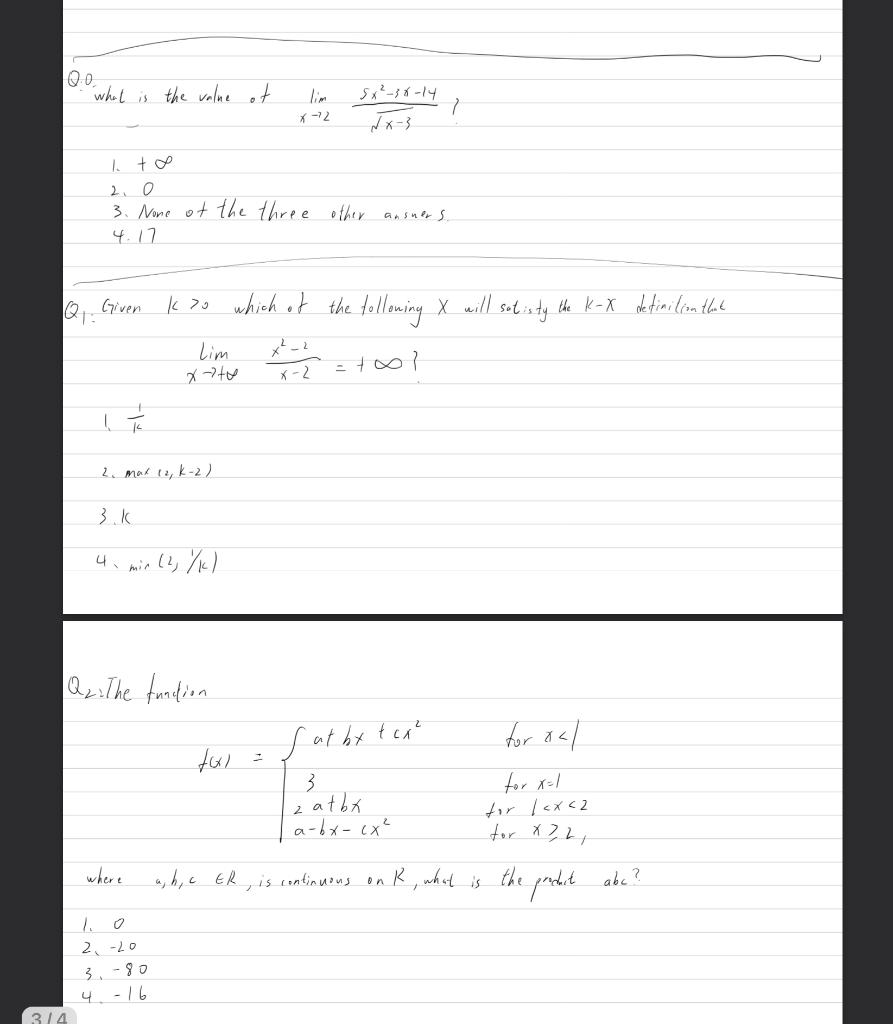 Q.0.
what is the value of lim x→2 (5x²-3x-14)/√(x-3) ?
1. +∞
2. 0
3. None of the three other answers.
4. 17
Q1: Given k >0 which of the following X will satisfy the k-X definition that
lim x→+∞ (x²-2)/(x-2) = +∞ ?
1. 1/k
2. max (2, k-2)
3. k
4. min (2, 1/k)
Q2: The function
f(x) = { a+ bx + cx² for x<1
3 for x=1
2 a+bx for 1<x<2
a-bx- cx² for x≥2,
where a, b, c ∈R, is continuous on R, what is the product abc?
1. 0
2. -20
3. -80
4. -16
3/4